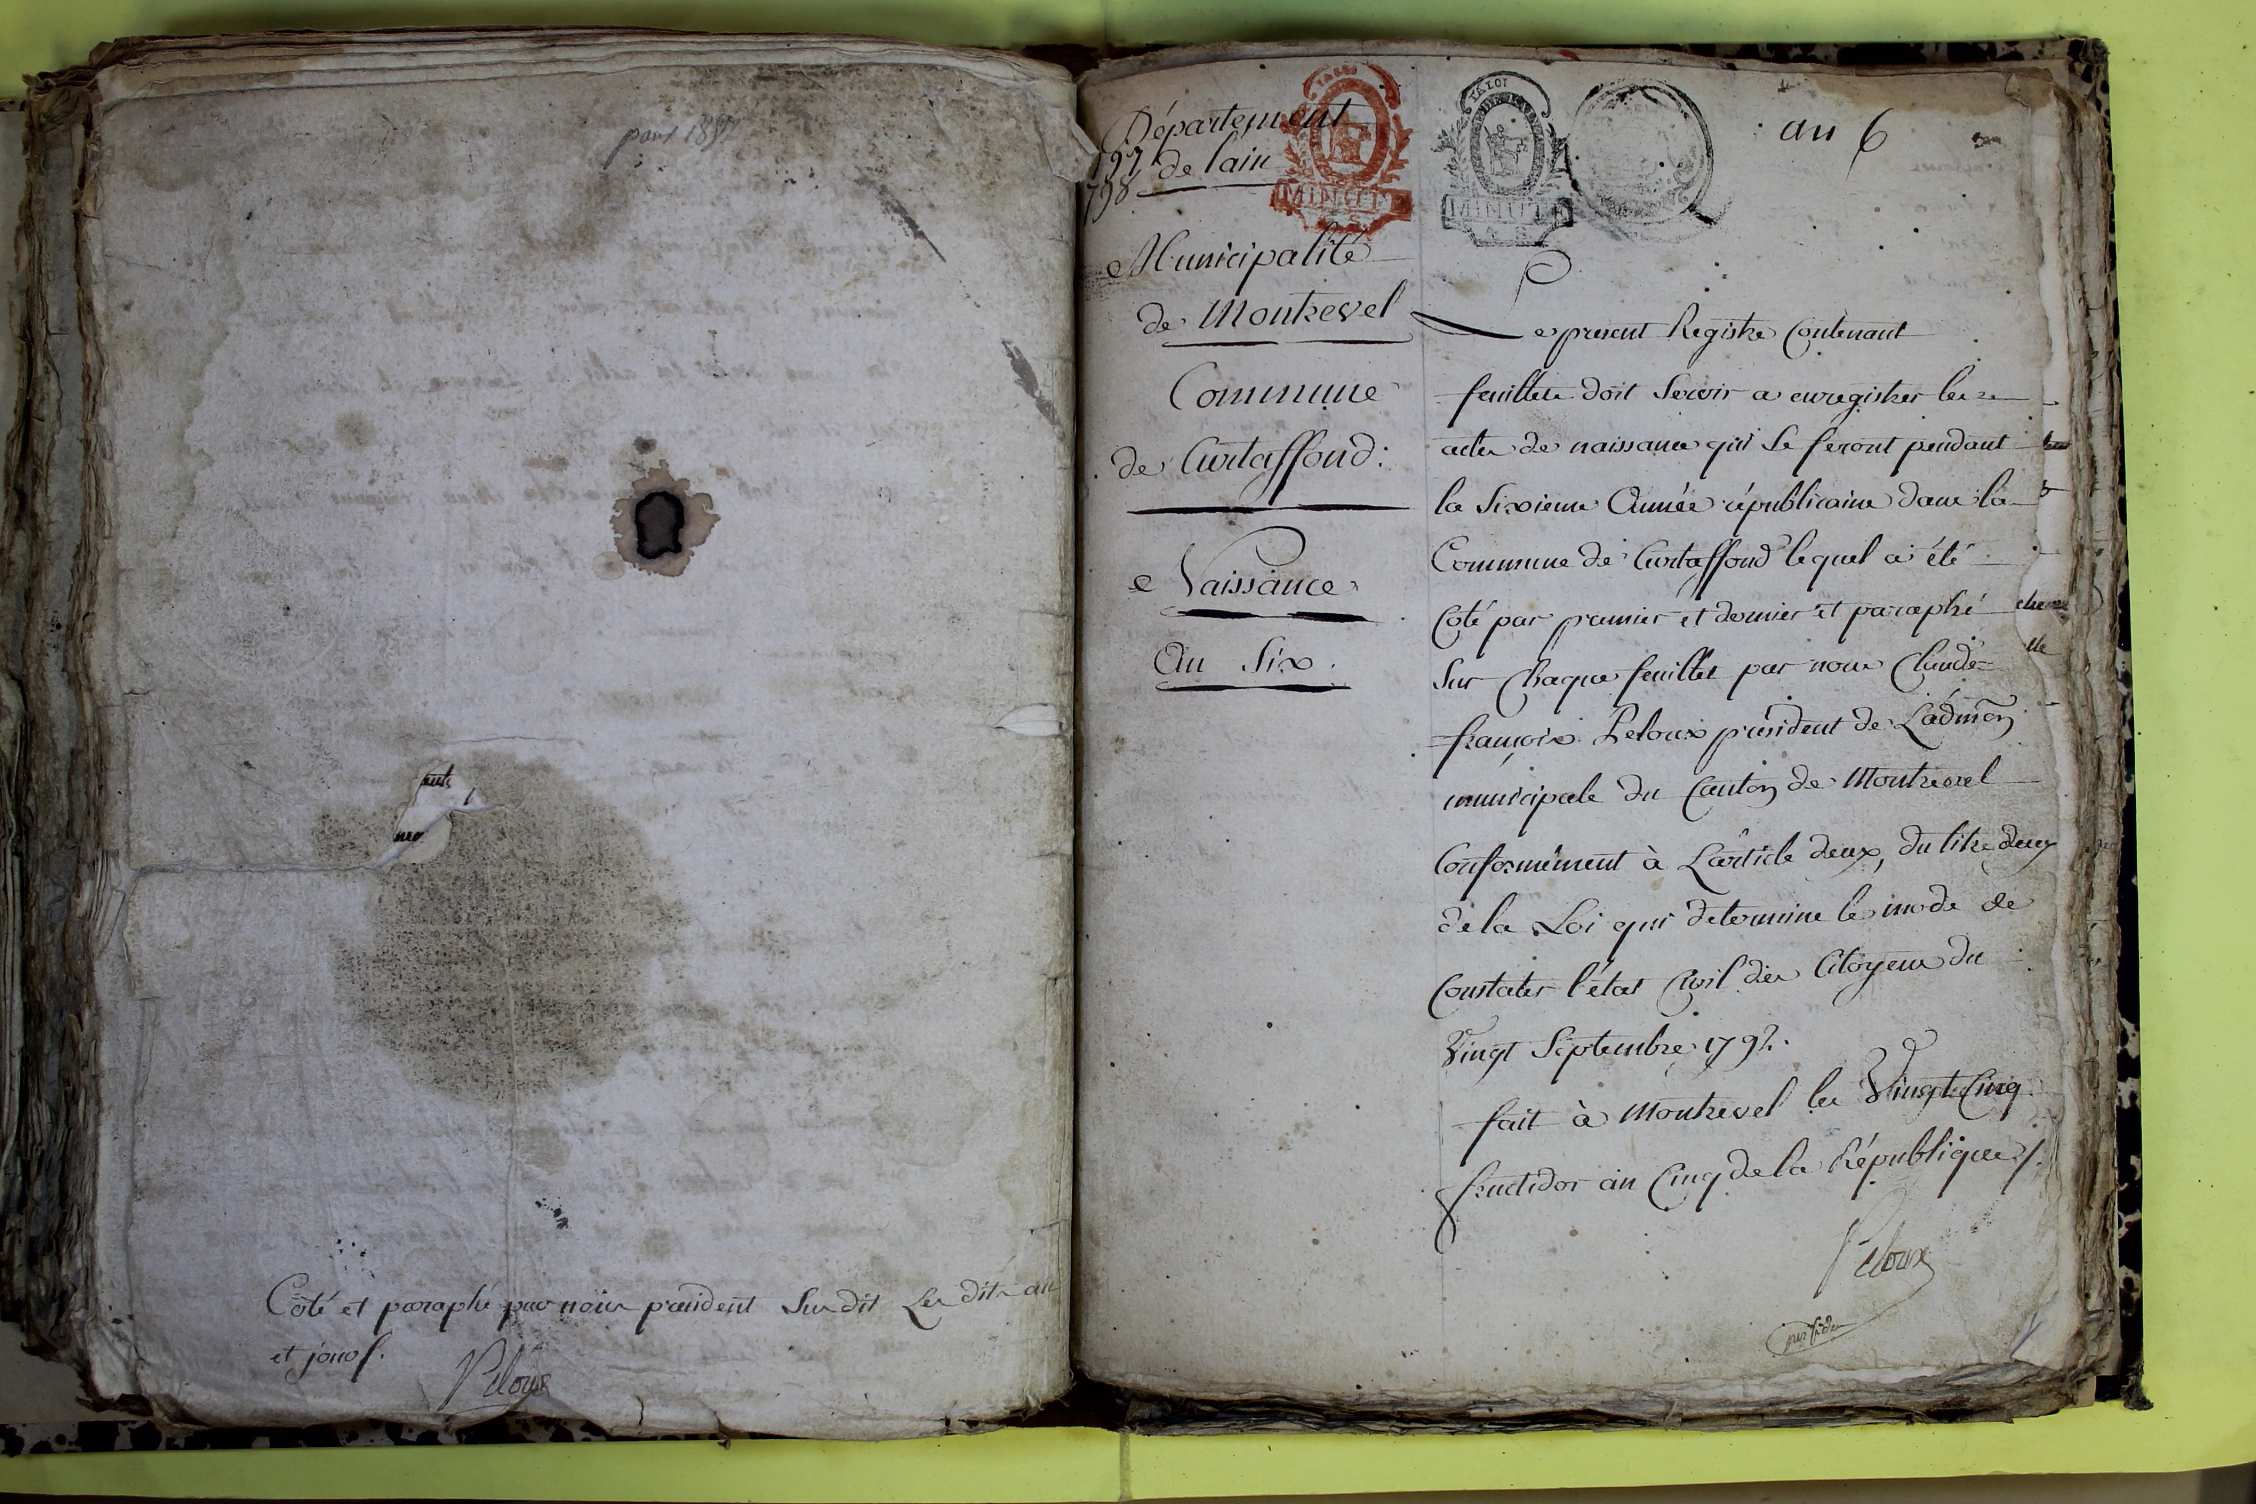 Coté et paraphé par nous président Susdit Les dits an
et jours.
Peloux
Département
de l'ain
Municipalité
de Montrevel
Commune
de Curtaffond:
Naissance
An Six.
LA LOI
MINUTE
LA LOI
MINUTE
an 6
Le present Registre Contenant
feuillets doit Servir a enregistrer les
actes de naissance qui Se feront pendant
la Sixieme Année républicaine dans la
Commune de Curtaffond lequel a été
Coté par premier et dernier et paraphé
Sur Chaque feuillet par nous Claude
françois Peloux président de L'admon
municipale du Canton de Montrevel
Conformément à L'article deux, du titre deux
de la Loi qui determine le mode de
Constater l'état Civil des Citoyens du
Vingt Septembre 1792.
fait à Montrevel les Vingt Cinq
fructidor an Cinq de la République
Peloux